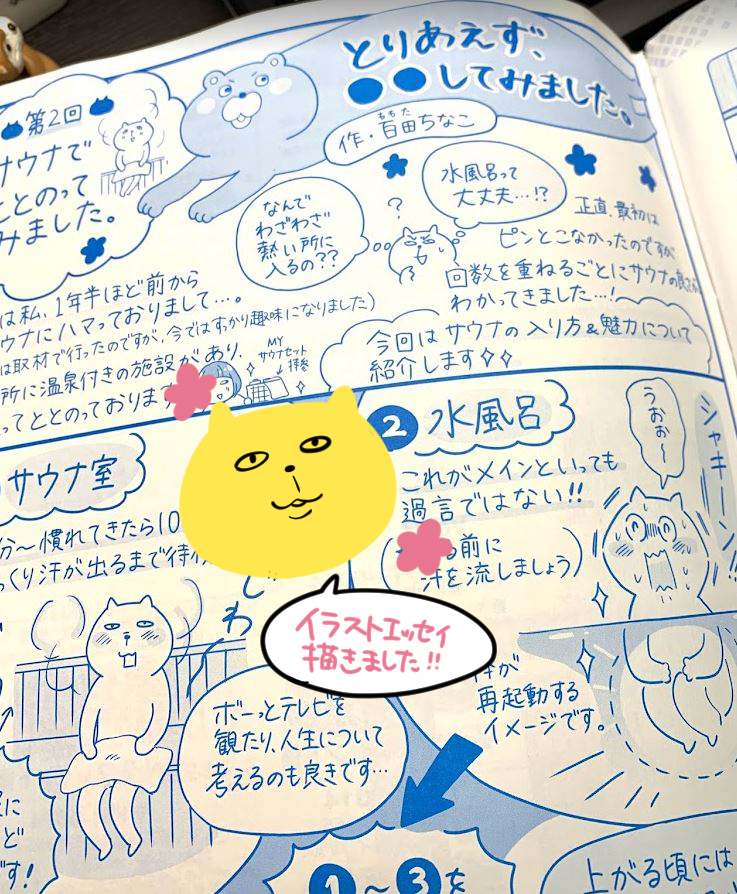 とりあえず、
●●してみました。
作・百田ちなこ
ももた
第2回
サウナで
ととのって
みました。
なんで
わざわざ
熱い所に
入るの??
水風呂って
大丈夫…!?
?
正直、最初は
ピンとこなかったのですが
回数を重ねるごとにサウナの良さが
わかってきました…!
は私、1年半ほど前から
サウナにハマっておりまして…。
は取材で行ったのですが、今ではすっかり趣味になりました)
所に温泉付きの施設があり、
ってととのっております
MY
サウナセット
持参
今回はサウナの入り方&魅力について
紹介します
サウナ室
分〜慣れてきたら10
っくり汗が出るまで待
じわ
ボーっとテレビを
観たり、人生について
考えるのも良きです…
2 水風呂
これがメインといっても
過言ではない!!
る前に
汗を流しましょう)
うおぉ〜
シャキーン!!
体が
再起動する
イメージです。
イラストエッセイ
描きました!!
に
ど
す!
1〜3を
上がる頃には